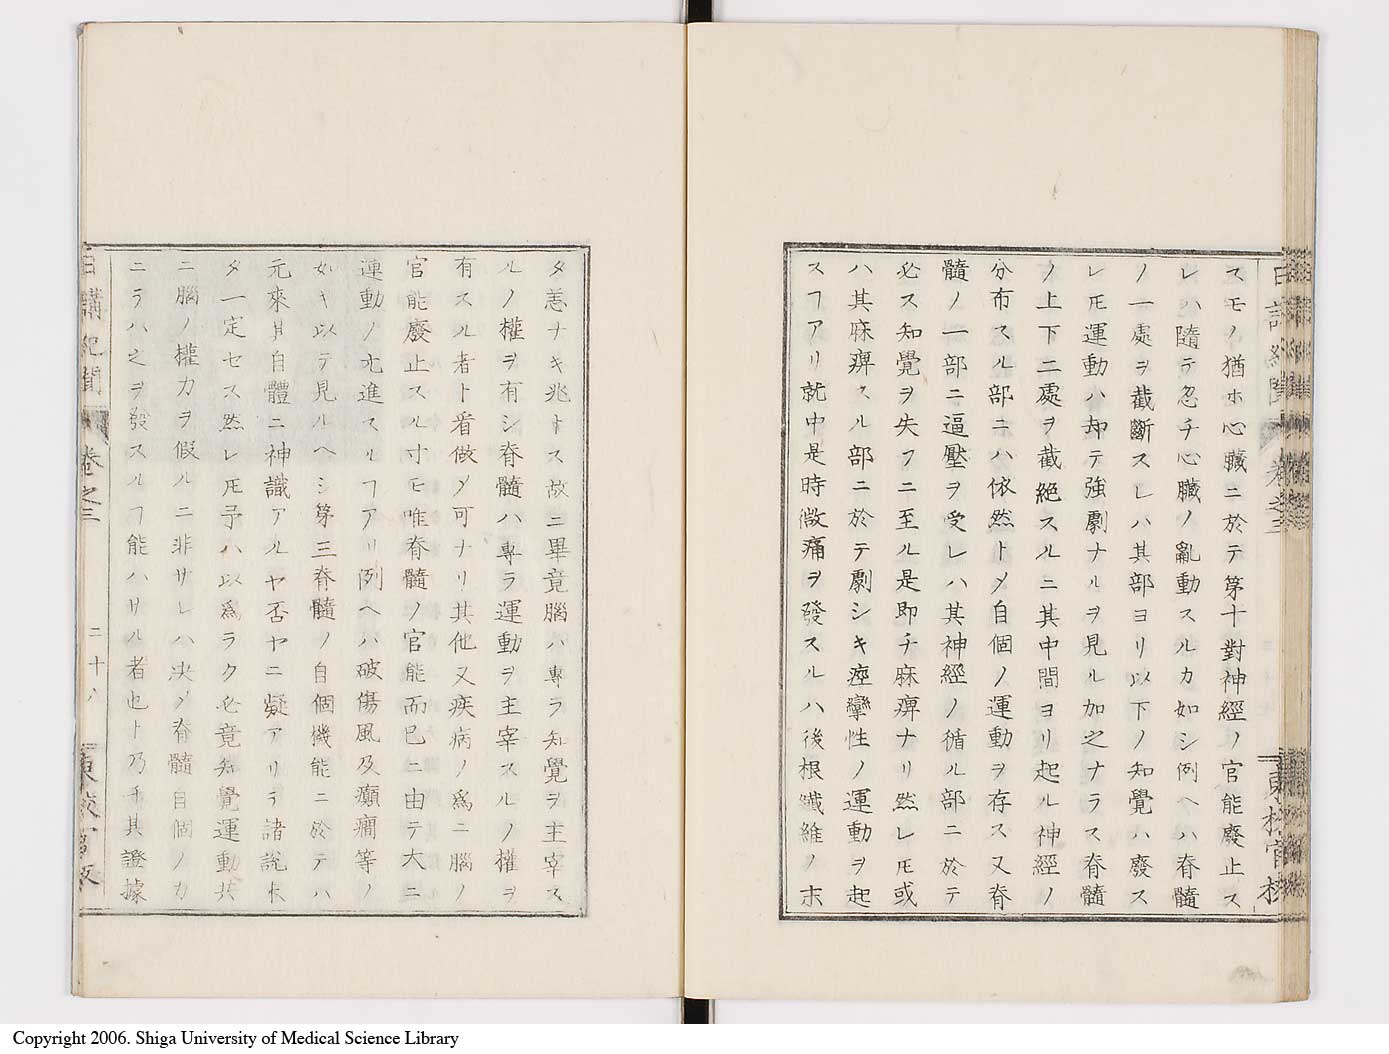 スモノ猶ホ心臓ニ於テ第十對神經ノ官能廢止ス
レハ隨テ忽チ心臓ノ亂動スルカ如シ例ヘハ脊髓
ノ一處ヲ截斷スレハ其部ヨリ以下ノ知覺ハ廢ス
レ𪜈運動ハ却テ強劇ナルヲ見ル加之ナラス脊髓
ノ上下二處ヲ截絶スルニ其中間ヨリ起ル神經ノ
分布スル部ニハ依然トメ自個ノ運動ヲ存ス又脊
髓ノ一部ニ逼壓ヲ受レハ其神經ノ循ル部ニ於テ
必ス知覺ヲ失フニ至ル是即チ麻痺ナリ然レ𪜈或
ハ其麻痺スル部ニ於テ劇シキ痙攣性ノ運動ヲ起
スヿアリ就中是時微痛ヲ發スルハ後根纎維ノ末
タ恙ナキ兆トス故ニ畢竟腦ハ專ラ知覺ヲ主宰ス
ルノ權ヲ有シ脊髓ハ專ラ運動ヲ主宰スルノ權ヲ
有スル者ト看做メ可ナリ其他又疾病ノ爲ニ腦ノ
官能廢止スル寸モ唯脊髓ノ官能而已ニ由テ大ニ
運動ノ亢進スルヿアリ例ヘハ破傷風及癲癇等ノ
如キ以テ見ルヘシ第三脊髓ノ自個機能ニ於テハ
元來其自體ニ神識アルヤ否ヤニ疑アリテ諸說未
タ一定セス然レ𪜈予ハ以爲ラク必竟知覺運動共
ニ腦ノ權力ヲ假ルニ非サレハ决メ脊髓自個ノカ
ニテハ之ヲ發スルヿ能ハサル者也ト乃チ其證據
日講紀聞 卷之三 二十八 東校官板